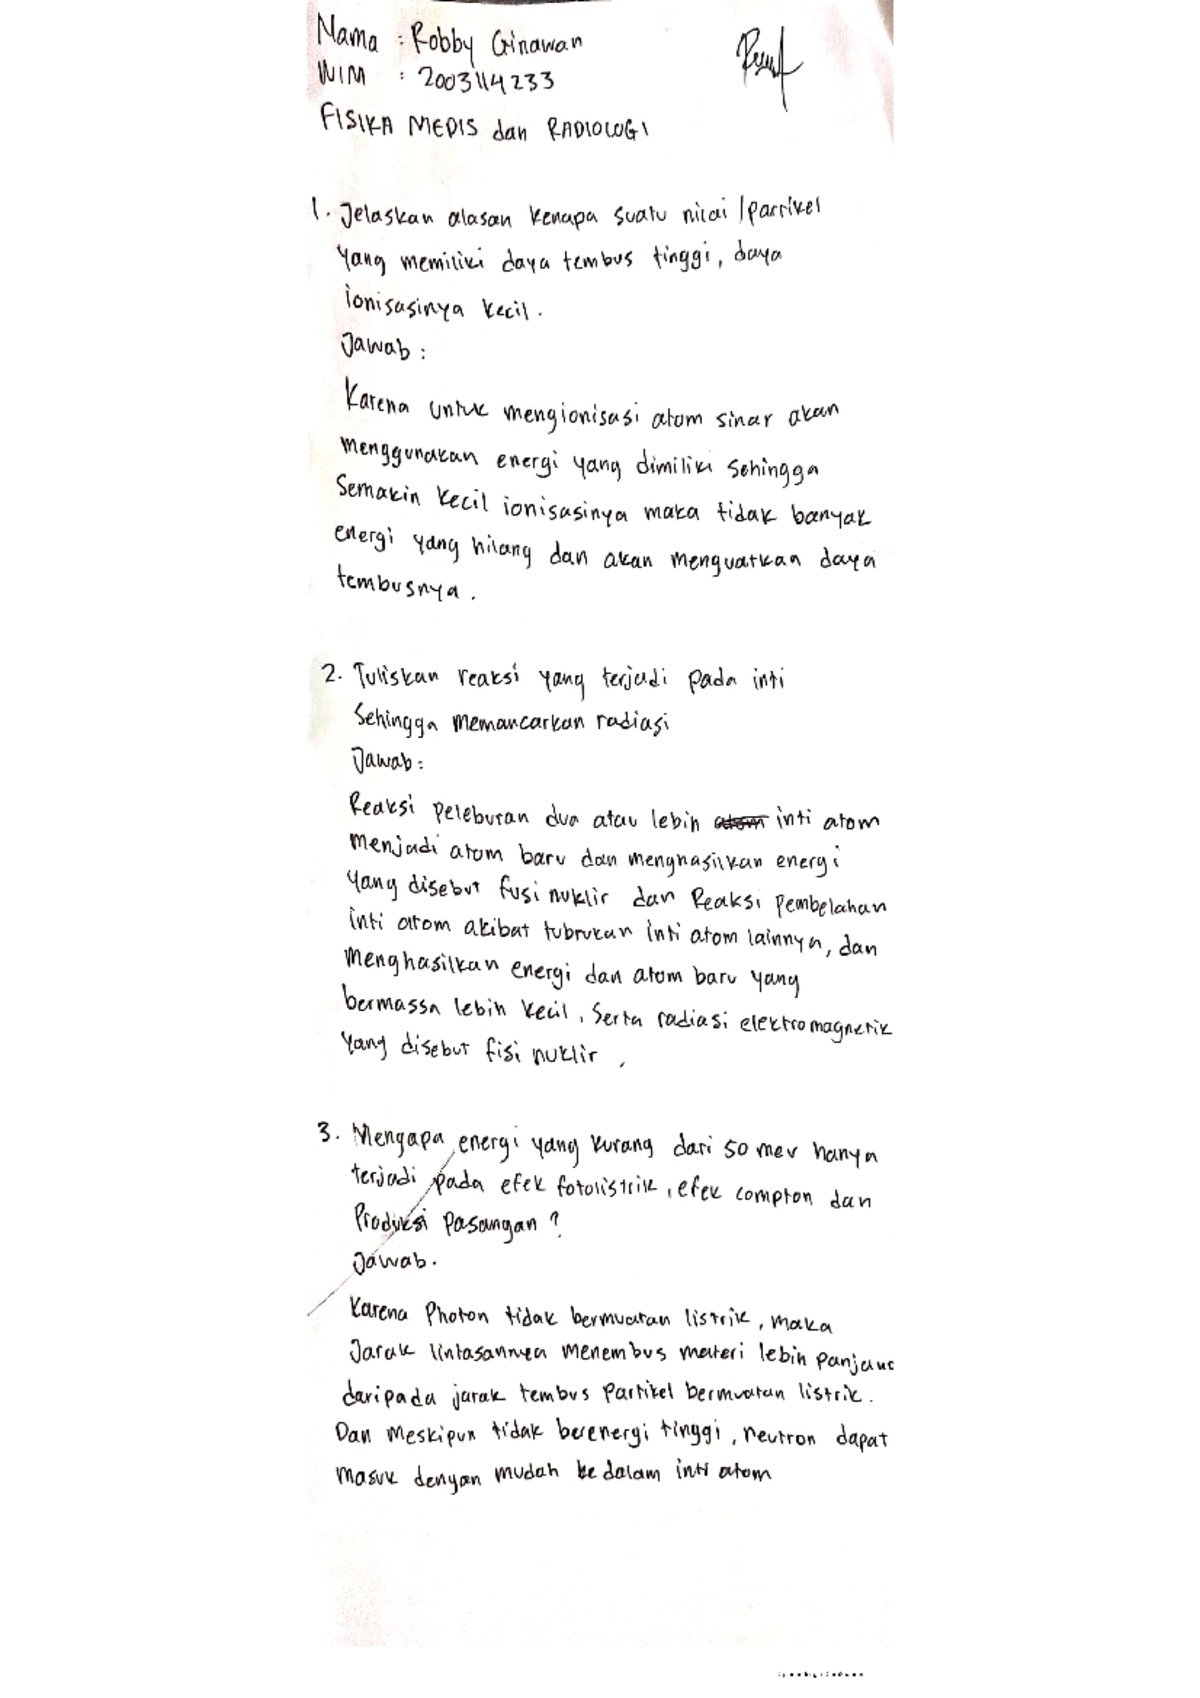 Nama : Robby Ginawan
NIM : 2003114233
FISIKA MEDIS dan RADIOLOGI
1. Jelaskan alasan kenapa suatu nilai/partikel
yang memiliki daya tembus tinggi, daya
ionisasinya kecil.
Jawab :
Karena untuk mengionisasi atom sinar akan
menggunakan energi yang dimiliki sehingga
Semakin kecil ionisasinya maka tidak banyak
energi yang hilang dan akan menguatkan daya
tembusnya.
2. Tuliskan reaksi yang terjadi pada inti
Sehingga memancarkan radiasi
Jawab :
Reaksi peleburan dua atau lebih atom inti atom
menjadi atom baru dan menghasilkan energi
yang disebut fusi nuklir dan Reaksi pembelahan
inti atom akibat tubrukan inti atom lainnya, dan
menghasilkan energi dan atom baru yang
bermassa lebih kecil, Serta radiasi elektromagnetik
yang disebut fisi nuklir,
3. Mengapa energi yang kurang dari 50 mev hanya
terjadi pada efek fotolistrik, efek compton dan
Produksi pasangan ?
Jawab.
Karena Photon tidak bermuatan listrik, maka
Jarak lintasannya menembus materi lebih panjang
daripada jarak tembus Partikel bermuatan listrik.
Dan meskipun tidak berenergi tinggi, neutron dapat
masuk dengan mudah ke dalam inti atom